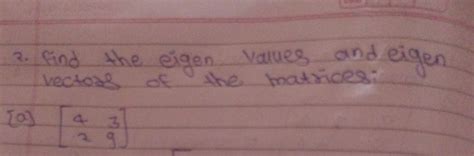 2. Find the eigen values and eigen
vectors of the matrices:
[a] [4 3
2 9]